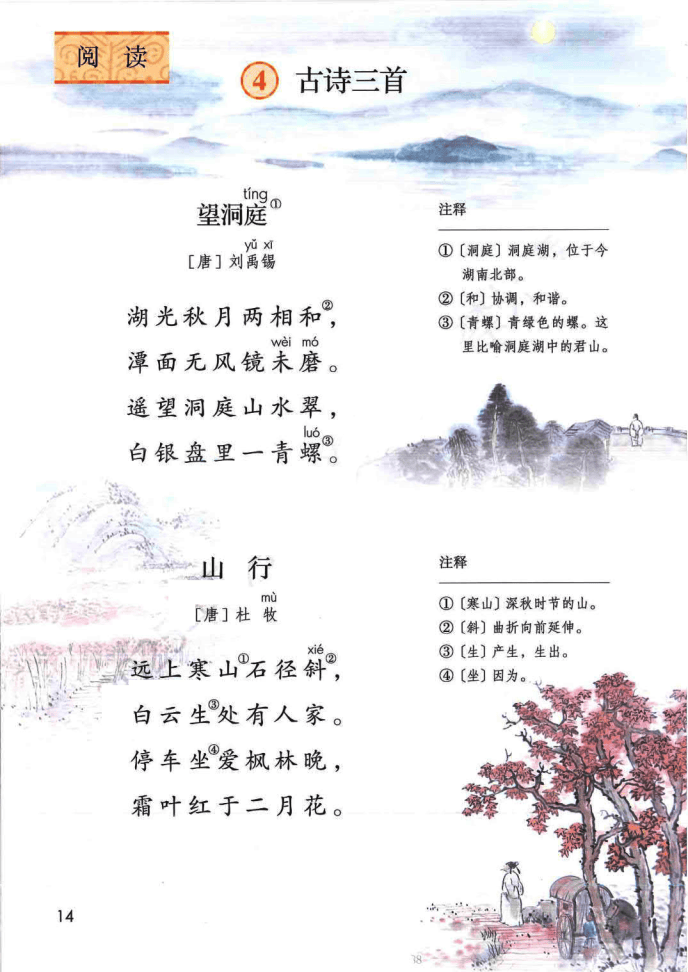 阅 读
④ 古诗三首
tíng
望洞庭①
yǔ xī
[唐]刘禹锡
湖光秋月两相和②，
wèi mó
潭面无风镜未磨。
遥望洞庭山水翠，
luó
白银盘里一青螺③。
注释
①〔洞庭〕洞庭湖，位于今
湖南北部。
②〔和〕协调，和谐。
③〔青螺〕青绿色的螺。这
里比喻洞庭湖中的君山。
山 行
mù
[唐]杜 牧
xié
远上寒山①石径斜②，
白云生③处有人家。
停车坐④爱枫林晚，
霜叶红于二月花。
注释
①〔寒山〕深秋时节的山。
②〔斜〕曲折向前延伸。
③〔生〕产生，生出。
④〔坐〕因为。
14